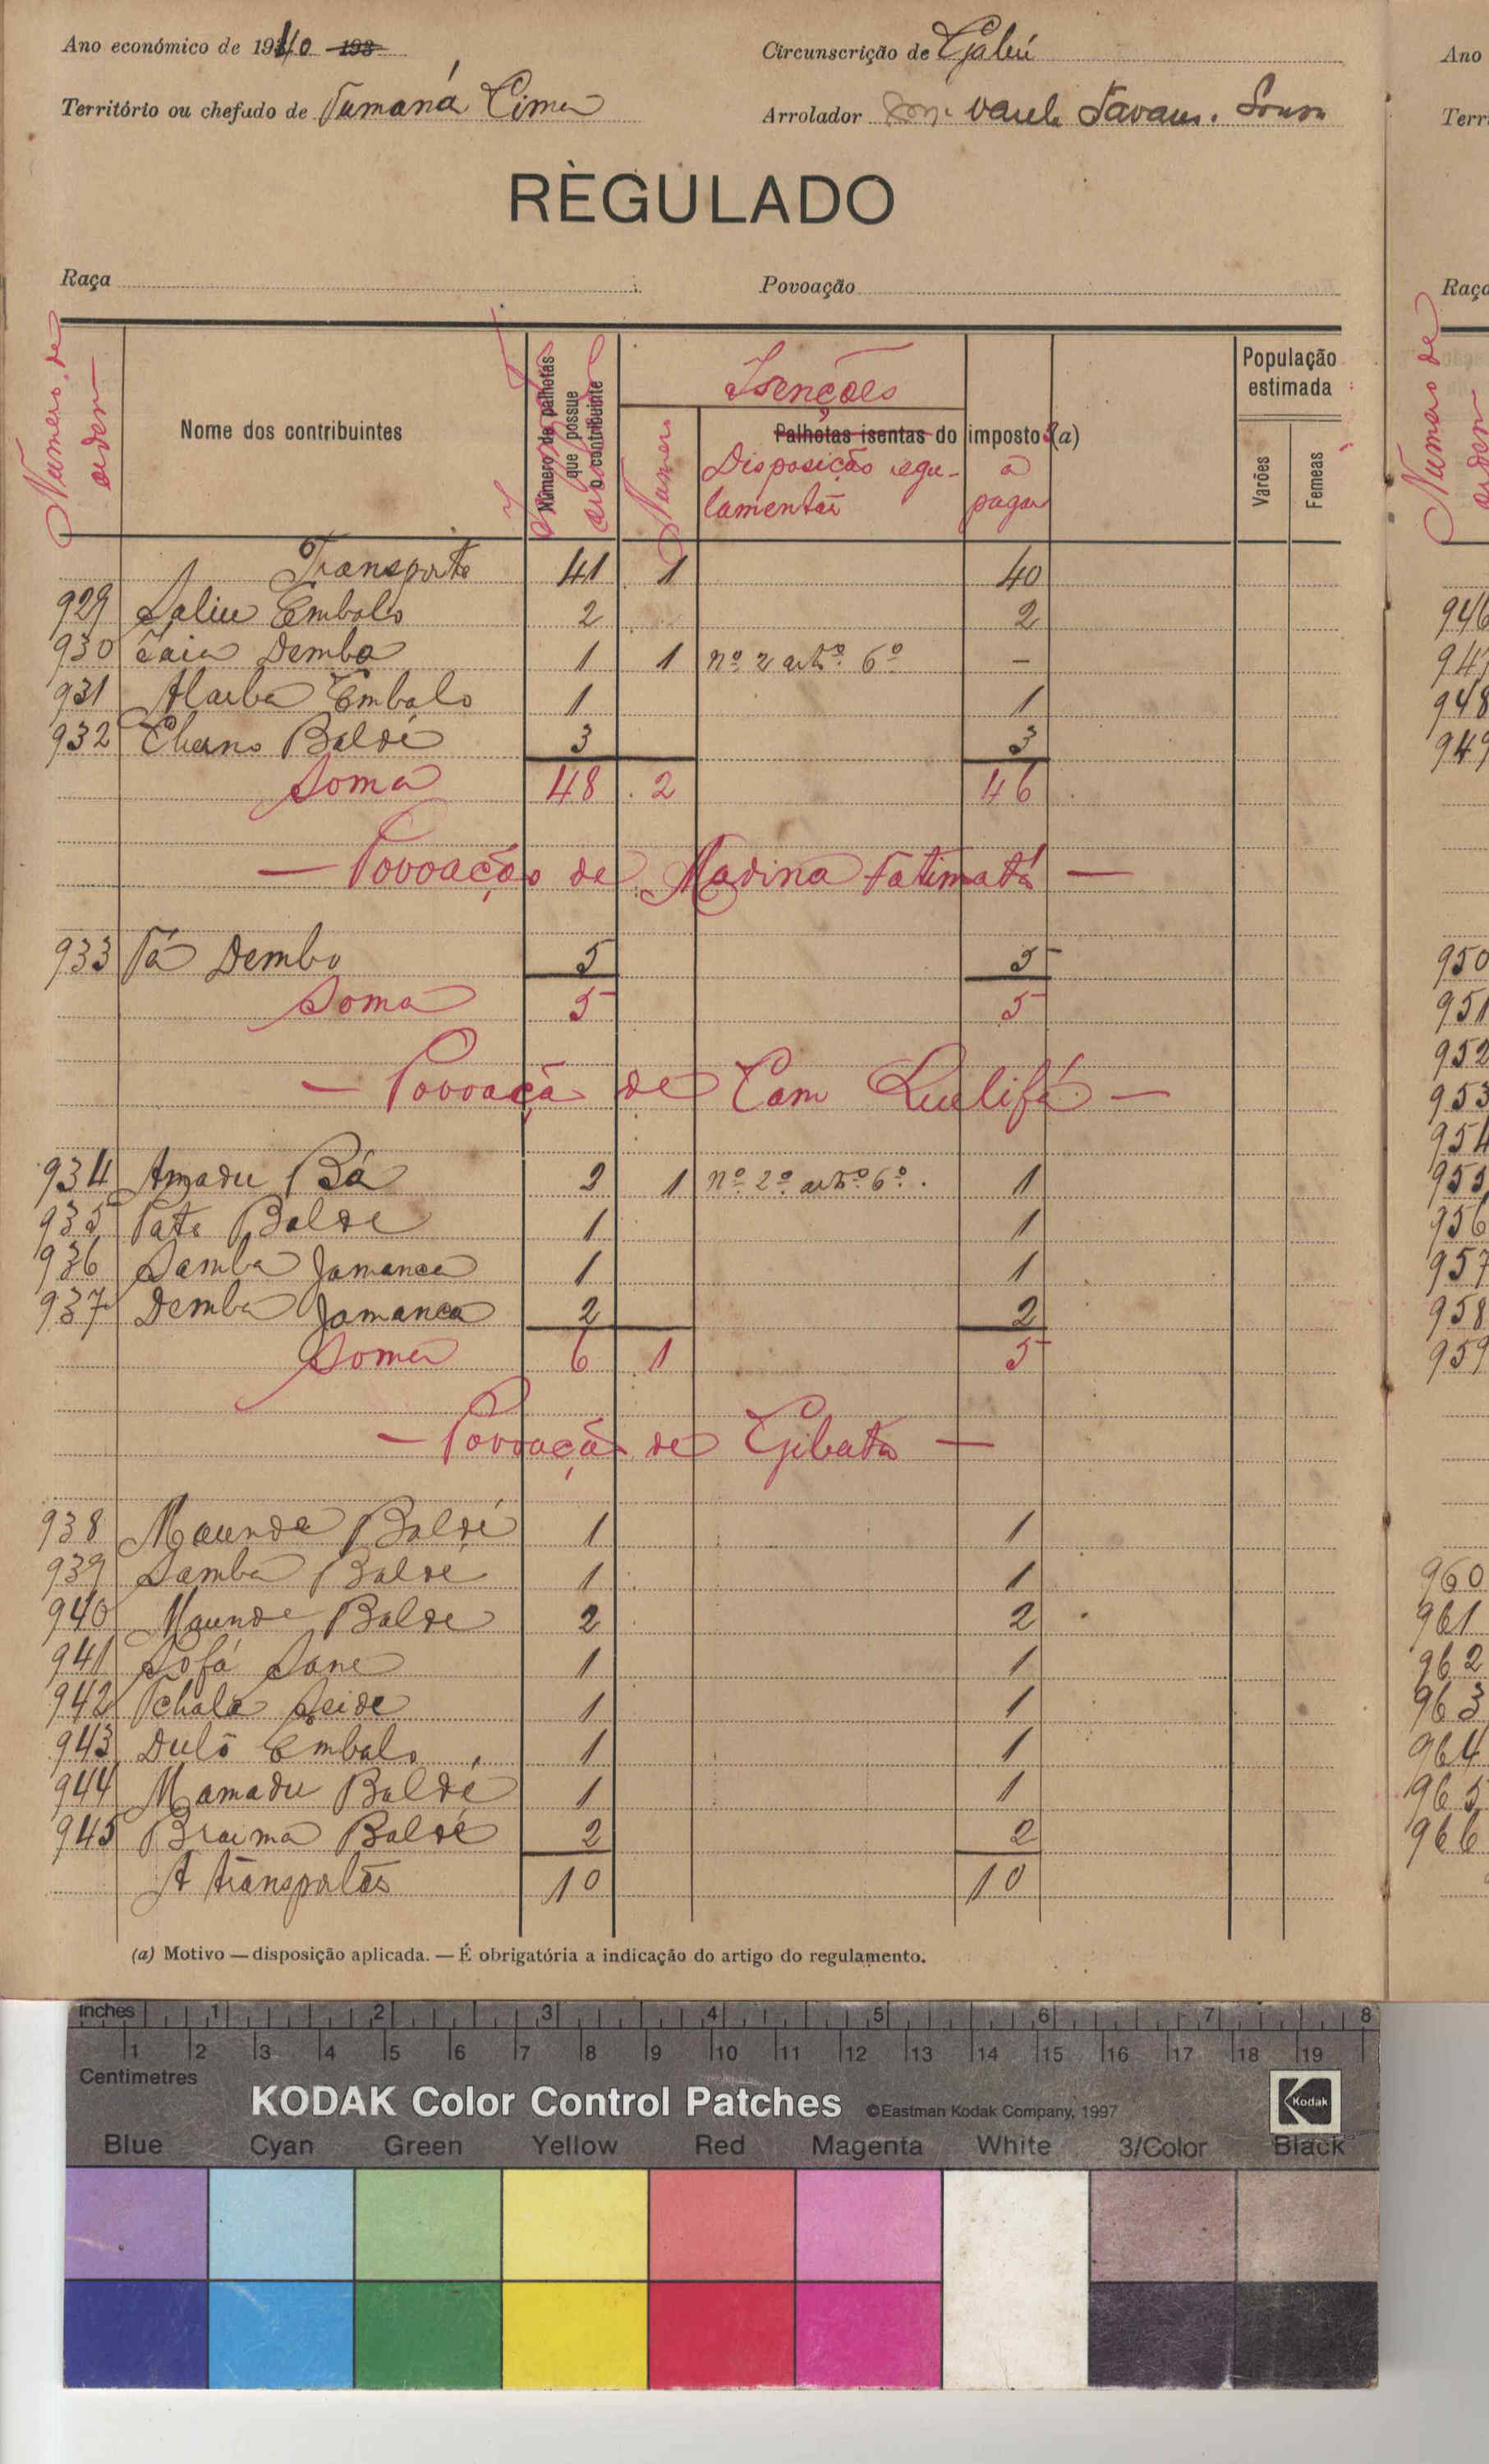 Ano económico de 1940 193
Circunscrição de Gabú
Território ou chefado de Tumaná Cima
Arrolador Tavares. Sousa
REGULADO
Raça
Povoação
Numero de ordem
Nome dos contribuintes
Número de palhotas que possue o contribuinte
Isenções
Numero
Palhotas isentas do imposto (a)
Disposição regulamentar
a pagar
População estimada
Varões
Femeas
Transporte 41 1 40
929 Saliu Embalo 2 2
930 Demba 1 1 nº 2 artº 6º —
931 Embalo 1 1
932 Cherno Baldé 3 3
Soma 48 2 46
— Povoação de Madina Fatimatá —
933 Pá Dembo 5 5
Soma 5 5
— Povoação de Cam Quelifá —
934 Amadu Bá 2 1 nº 2º artº 6º. 1
935 Pate Balde 1 1
936 Samba Jamanca 1 1
937 Demba Jamanca 2 2
Soma 6 1 5
— Povoação de Gibata —
938 Maunde Baldé 1 1
939 Samba Baldé 1 1
940 Maunde Balde 2 2
941 Sofá Sane 1 1
942 Tchala Seide 1 1
943 Duló Embalo 1 1
944 Mamadu Baldé 1 1
945 Braima Baldé 2 2
A transportar 10 10
(a) Motivo — disposição aplicada. — É obrigatória a indicação do artigo do regulamento.
Ano
Terr
Raça
Numero de ordem
946
947
948
949
950
951
952
953
954
955
956
957
958
959
960
961
962
963
964
965
966
inches 1 2 3 4 5 6 7 8
1 2 3 4 5 6 7 8 9 10 11 12 13 14 15 16 17 18 19
Centimetres
KODAK Color Control Patches ©Eastman Kodak Company, 1997 Kodak
Blue Cyan Green Yellow Red Magenta White 3/Color Black